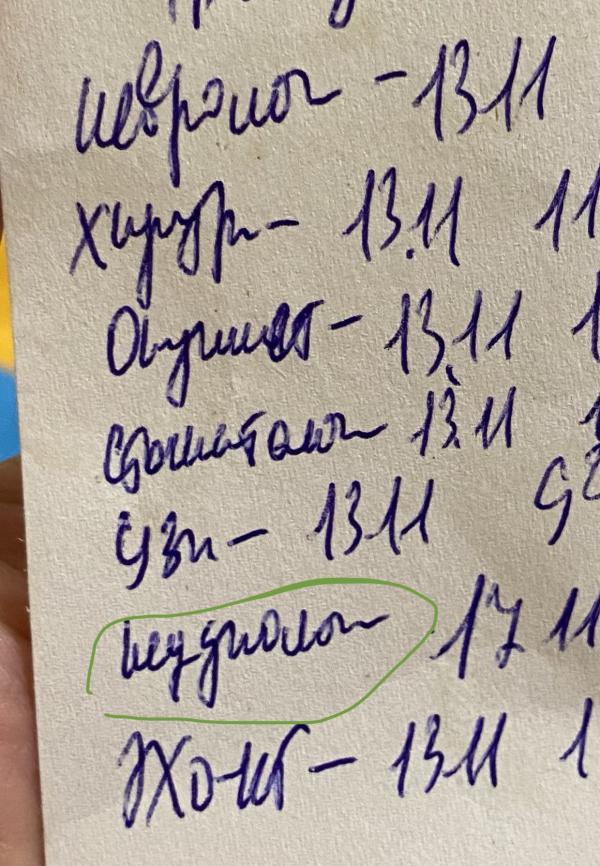 невролог - 13.11
хирург - 13.11 11
Окулист - 13.11 1
стоматолог 13.11 1
УЗИ - 13.11 9
17 11
ЭХО-КГ - 13.11 1